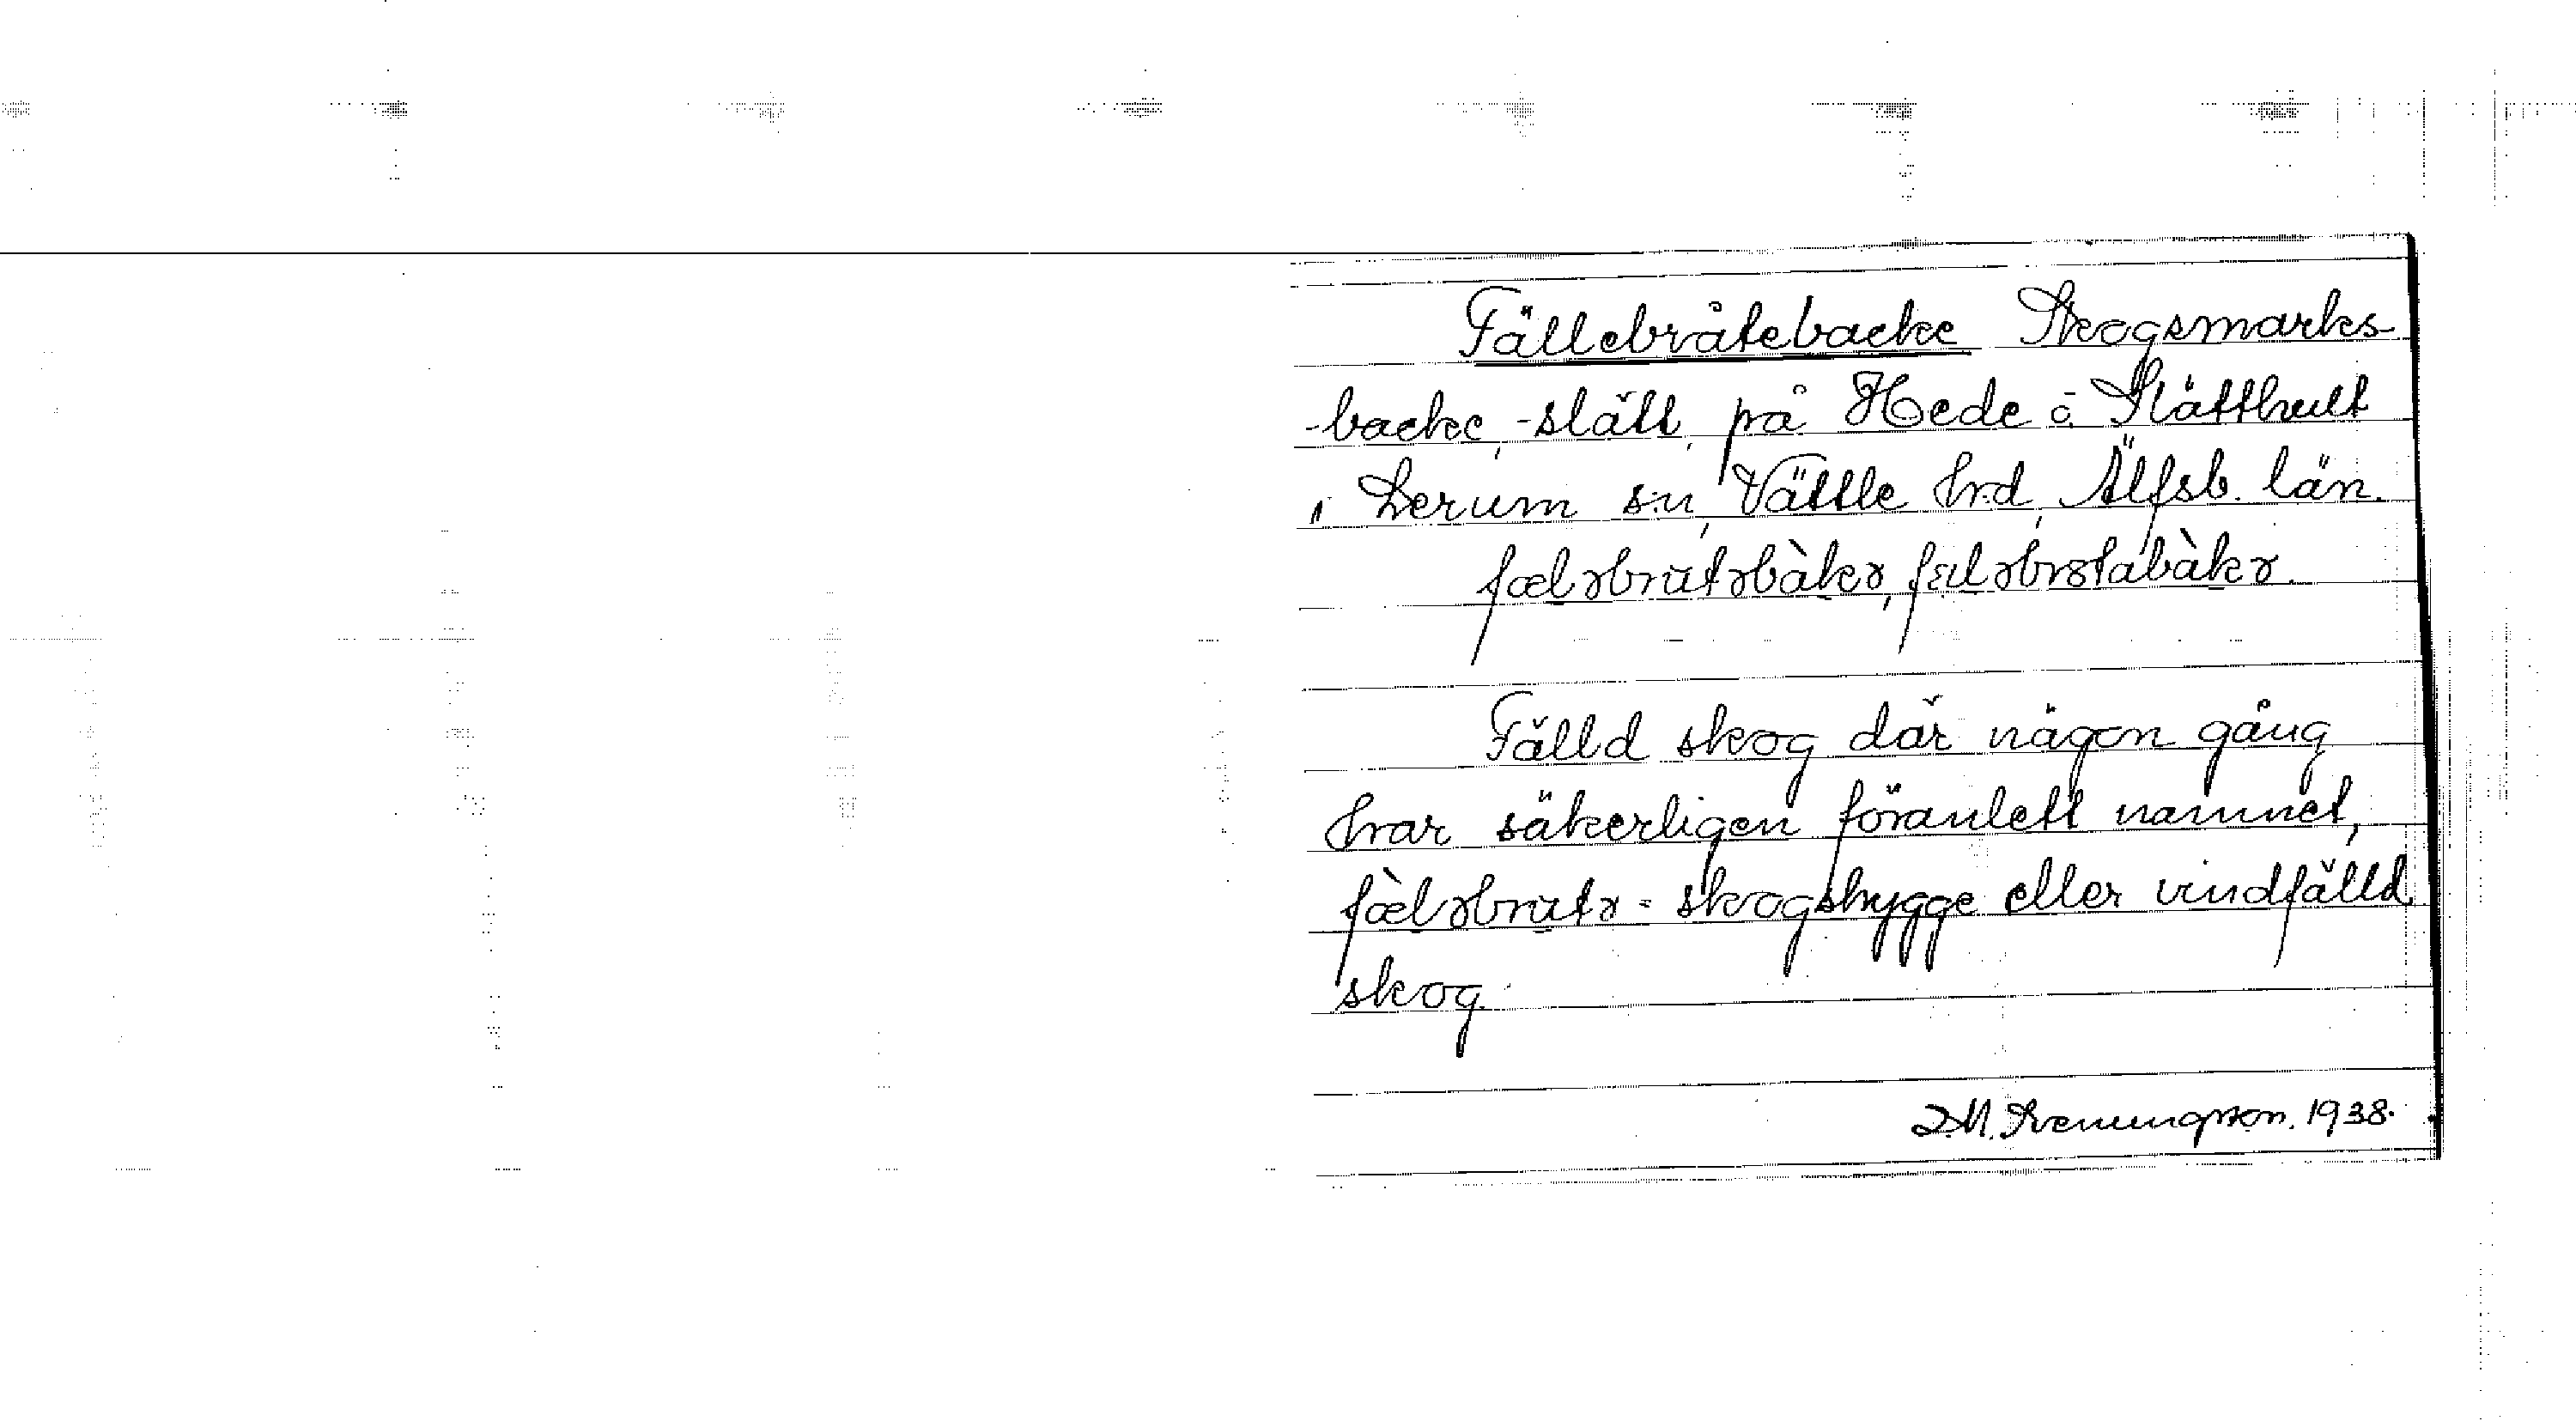 Fällebråtebacke Skogsmarks-
-backe, -slätt, på Hede o. Slätthult
i Lerum sn, Vättle hrd, Älfsb. län.
fælǝbrùtǝbàkǝ, fælǝbrǝtabàkǝ.
Fälld skog där någon gång
har säkerligen föranlett namnet,
fælǝbrutǝ = skogshygge eller vindfälld
skog.
1938.